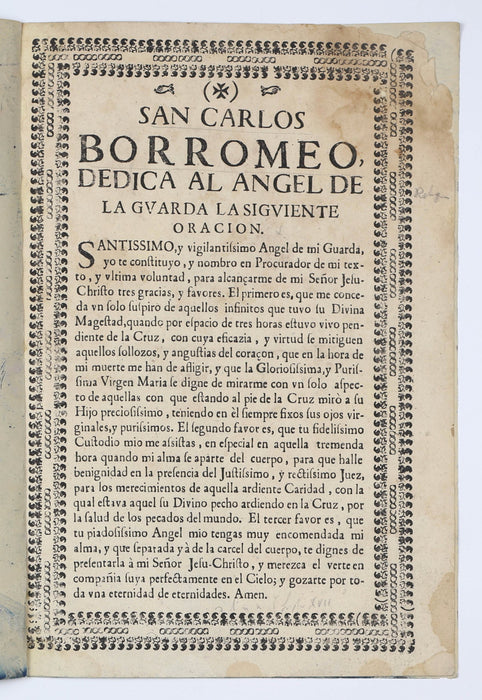 (✠)
SAN CARLOS
BORROMEO,
DEDICA AL ANGEL DE
LA GVARDA LA SIGVIENTE
ORACION.
SANTISSIMO, y vigilantissimo Angel de mi Guarda,
yo te constituyo, y nombro en Procurador de mi tex-
to, y vltima voluntad, para alcançarme de mi Señor Jesu-
Christo tres gracias, y favores. El primero es, que me conce-
da vn solo suspiro de aquellos infinitos que tuvo su Divina
Magestad, quando por espacio de tres horas estuvo vivo pen-
diente de la Cruz, con cuya eficazia, y virtud se mitiguen
aquellos sollozos, y angustias del coraçon, que en la hora de
mi muerte me han de afligir, y que la Gloriosissima, y Puris-
sima Virgen Maria se digne de mirarme con vn solo aspec-
to de aquellas con que estando al pie de la Cruz mirò a su
Hijo preciosissimo, teniendo en èl siempre fixos sus ojos vir-
ginales, y purissimos. El segundo favor es, que tu fidelissimo
Custodio mio me assistas, en especial en aquella tremenda
hora quando mi alma se aparte del cuerpo, para que halle
benignidad en la presencia del Justissimo, y rectissimo Juez,
para los merecimientos de aquella ardiente Caridad, con la
qual estava aquel su Divino pecho ardiendo en la Cruz, por
la salud de los pecados del mundo. El tercer favor es, que
tu piadosissimo Angel mio tengas muy encomendada mi
alma, y que separada yà de la carcel del cuerpo, te dignes de
presentarla à mi Señor Jesu-Christo, y merezca el verte en
compañia suya perfectamente en el Cielo; y gozarte por to-
da vna eternidad de eternidades. Amen.
XVII